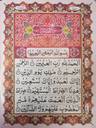 بِسْمِ اللَّهِ الرَّحْمَٰنِ الرَّحِيمِ
الْحَمْدُ لِلَّهِ رَبِّ الْعَالَمِينَ الرَّحْمَٰنِ
الرَّحِيمِ مَالِكِ يَوْمِ الدِّينِ إِيَّاكَ
نَعْبُدُ وَإِيَّاكَ نَسْتَعِينُ اهْدِنَا
الصِّرَاطَ الْمُسْتَقِيمَ صِرَاطَ الَّذِينَ
أَنْعَمْتَ عَلَيْهِمْ غَيْرِ الْمَغْضُوبِ
عَلَيْهِمْ وَلَا الضَّالِّينَ